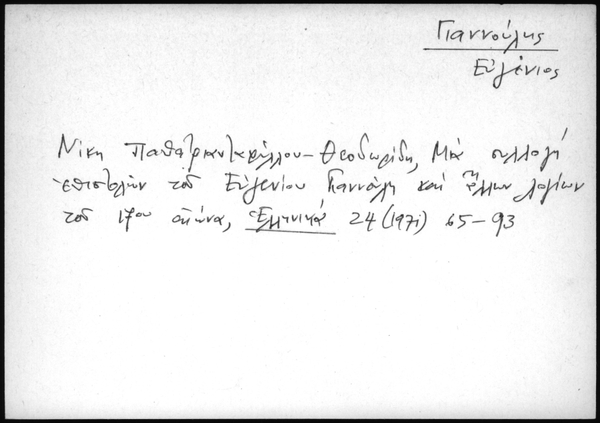 Γιαννούλης
Εὐγένιος
Νίκη Παπατριανταφύλλου-Θεοδωρίδη, Μιὰ συλλογὴ
ἐπιστολῶν τοῦ Εὐγενίου Γιαννούλη καὶ ἄλλων λογίων
τοῦ 17ου αἰώνα, Ἑλληνικά 24 (1971) 65-93